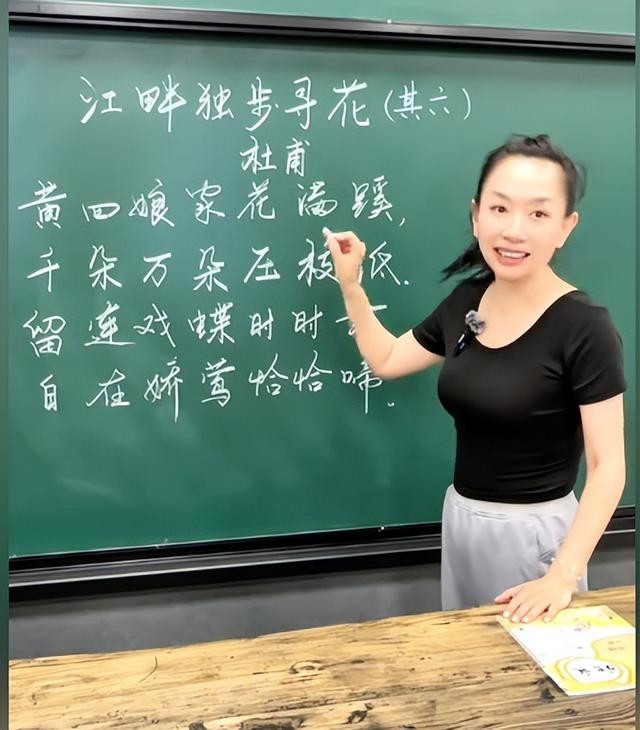 江畔独步寻花(其六)
杜甫
黄四娘家花满蹊,
千朵万朵压枝低.
留连戏蝶时时
自在娇莺恰恰啼.